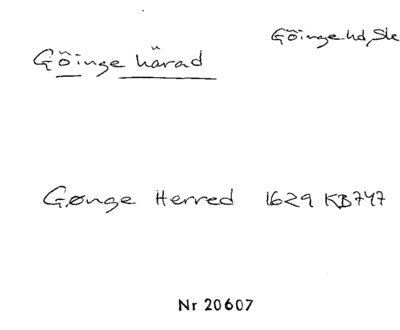 Göinge hd, Sk
Göinge härad
Gønge Herred 1629 KB747
Nr 20607